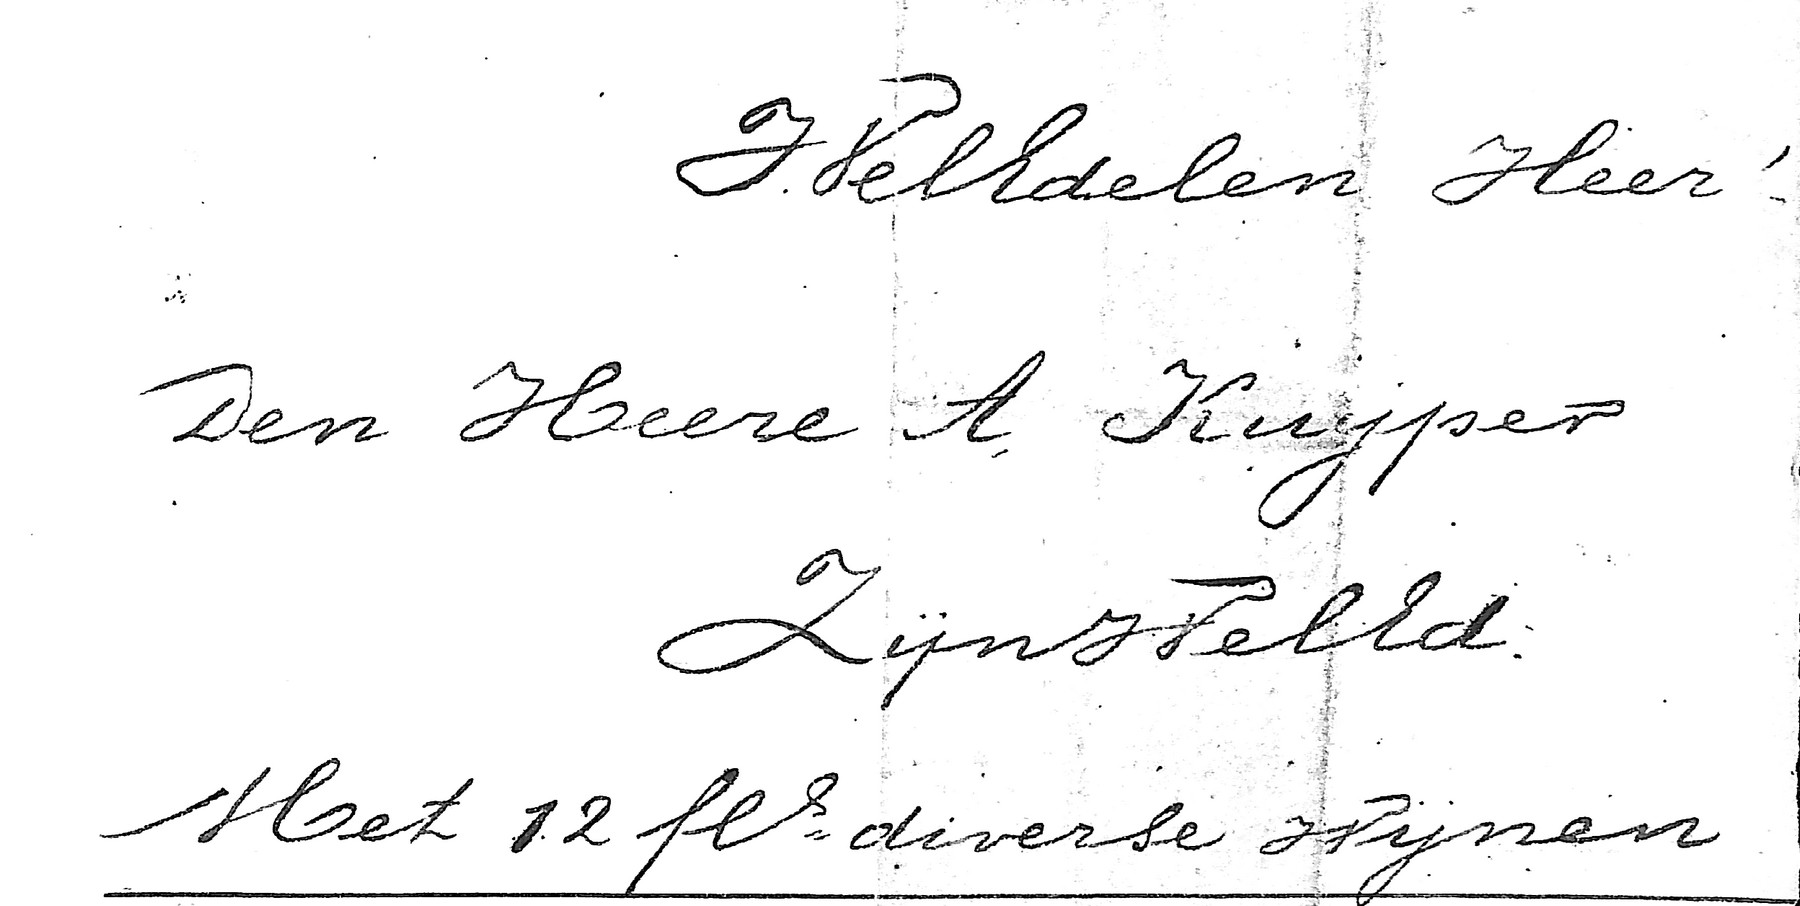 WelEdelen Heer!
Den Heere A. Kuyper
Zijn WelEd.
Met 12 fls diverse Wijnen